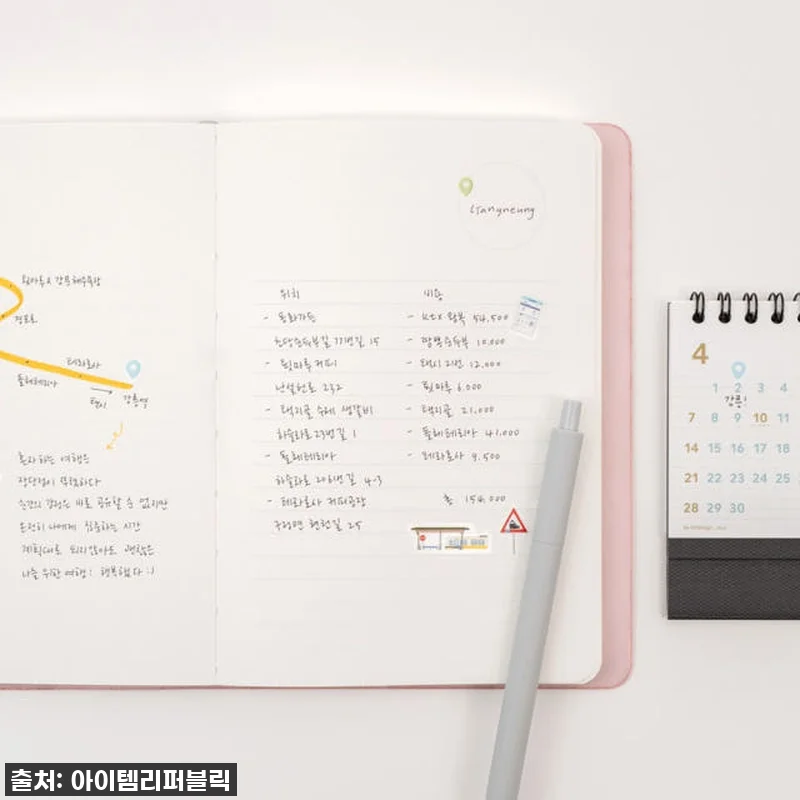 강문해수욕장
경포호
테라로사
폴레테리아
택시
강릉역
혼자 하는 여행은
장단점이 뚜렷하다
순간의 감정은 바로 공유할 수 없지만
온전히 나에게 집중하는 시간
계획대로 되지 않아도 괜찮은
나를 위한 여행! 행복했다 :)
Gangneung
위치
- 동화가든
초당순두부길 77번길 15
- 툇마루 커피
난설헌로 232
- 택지골 숯례 생갈비
하슬라로 23번길 1
- 폴레테리아
하슬라로 206번길 4-3
- 테라로사 커피공장
구정면 현천길 25
비용
- KTX 왕복 54,500
- 짬뽕순두부 10,000
- 택시 2번 12,000
- 툇마루 6,000
- 택지골 21,000
- 폴레테리아 41,000
- 테라로사 9,500
총 154,000
4
1 2 3 4
강릉!
7 8 9 10 11
14 15 16 17 18
21 22 23 24 25
28 29 30
출처: 아이템리퍼블릭